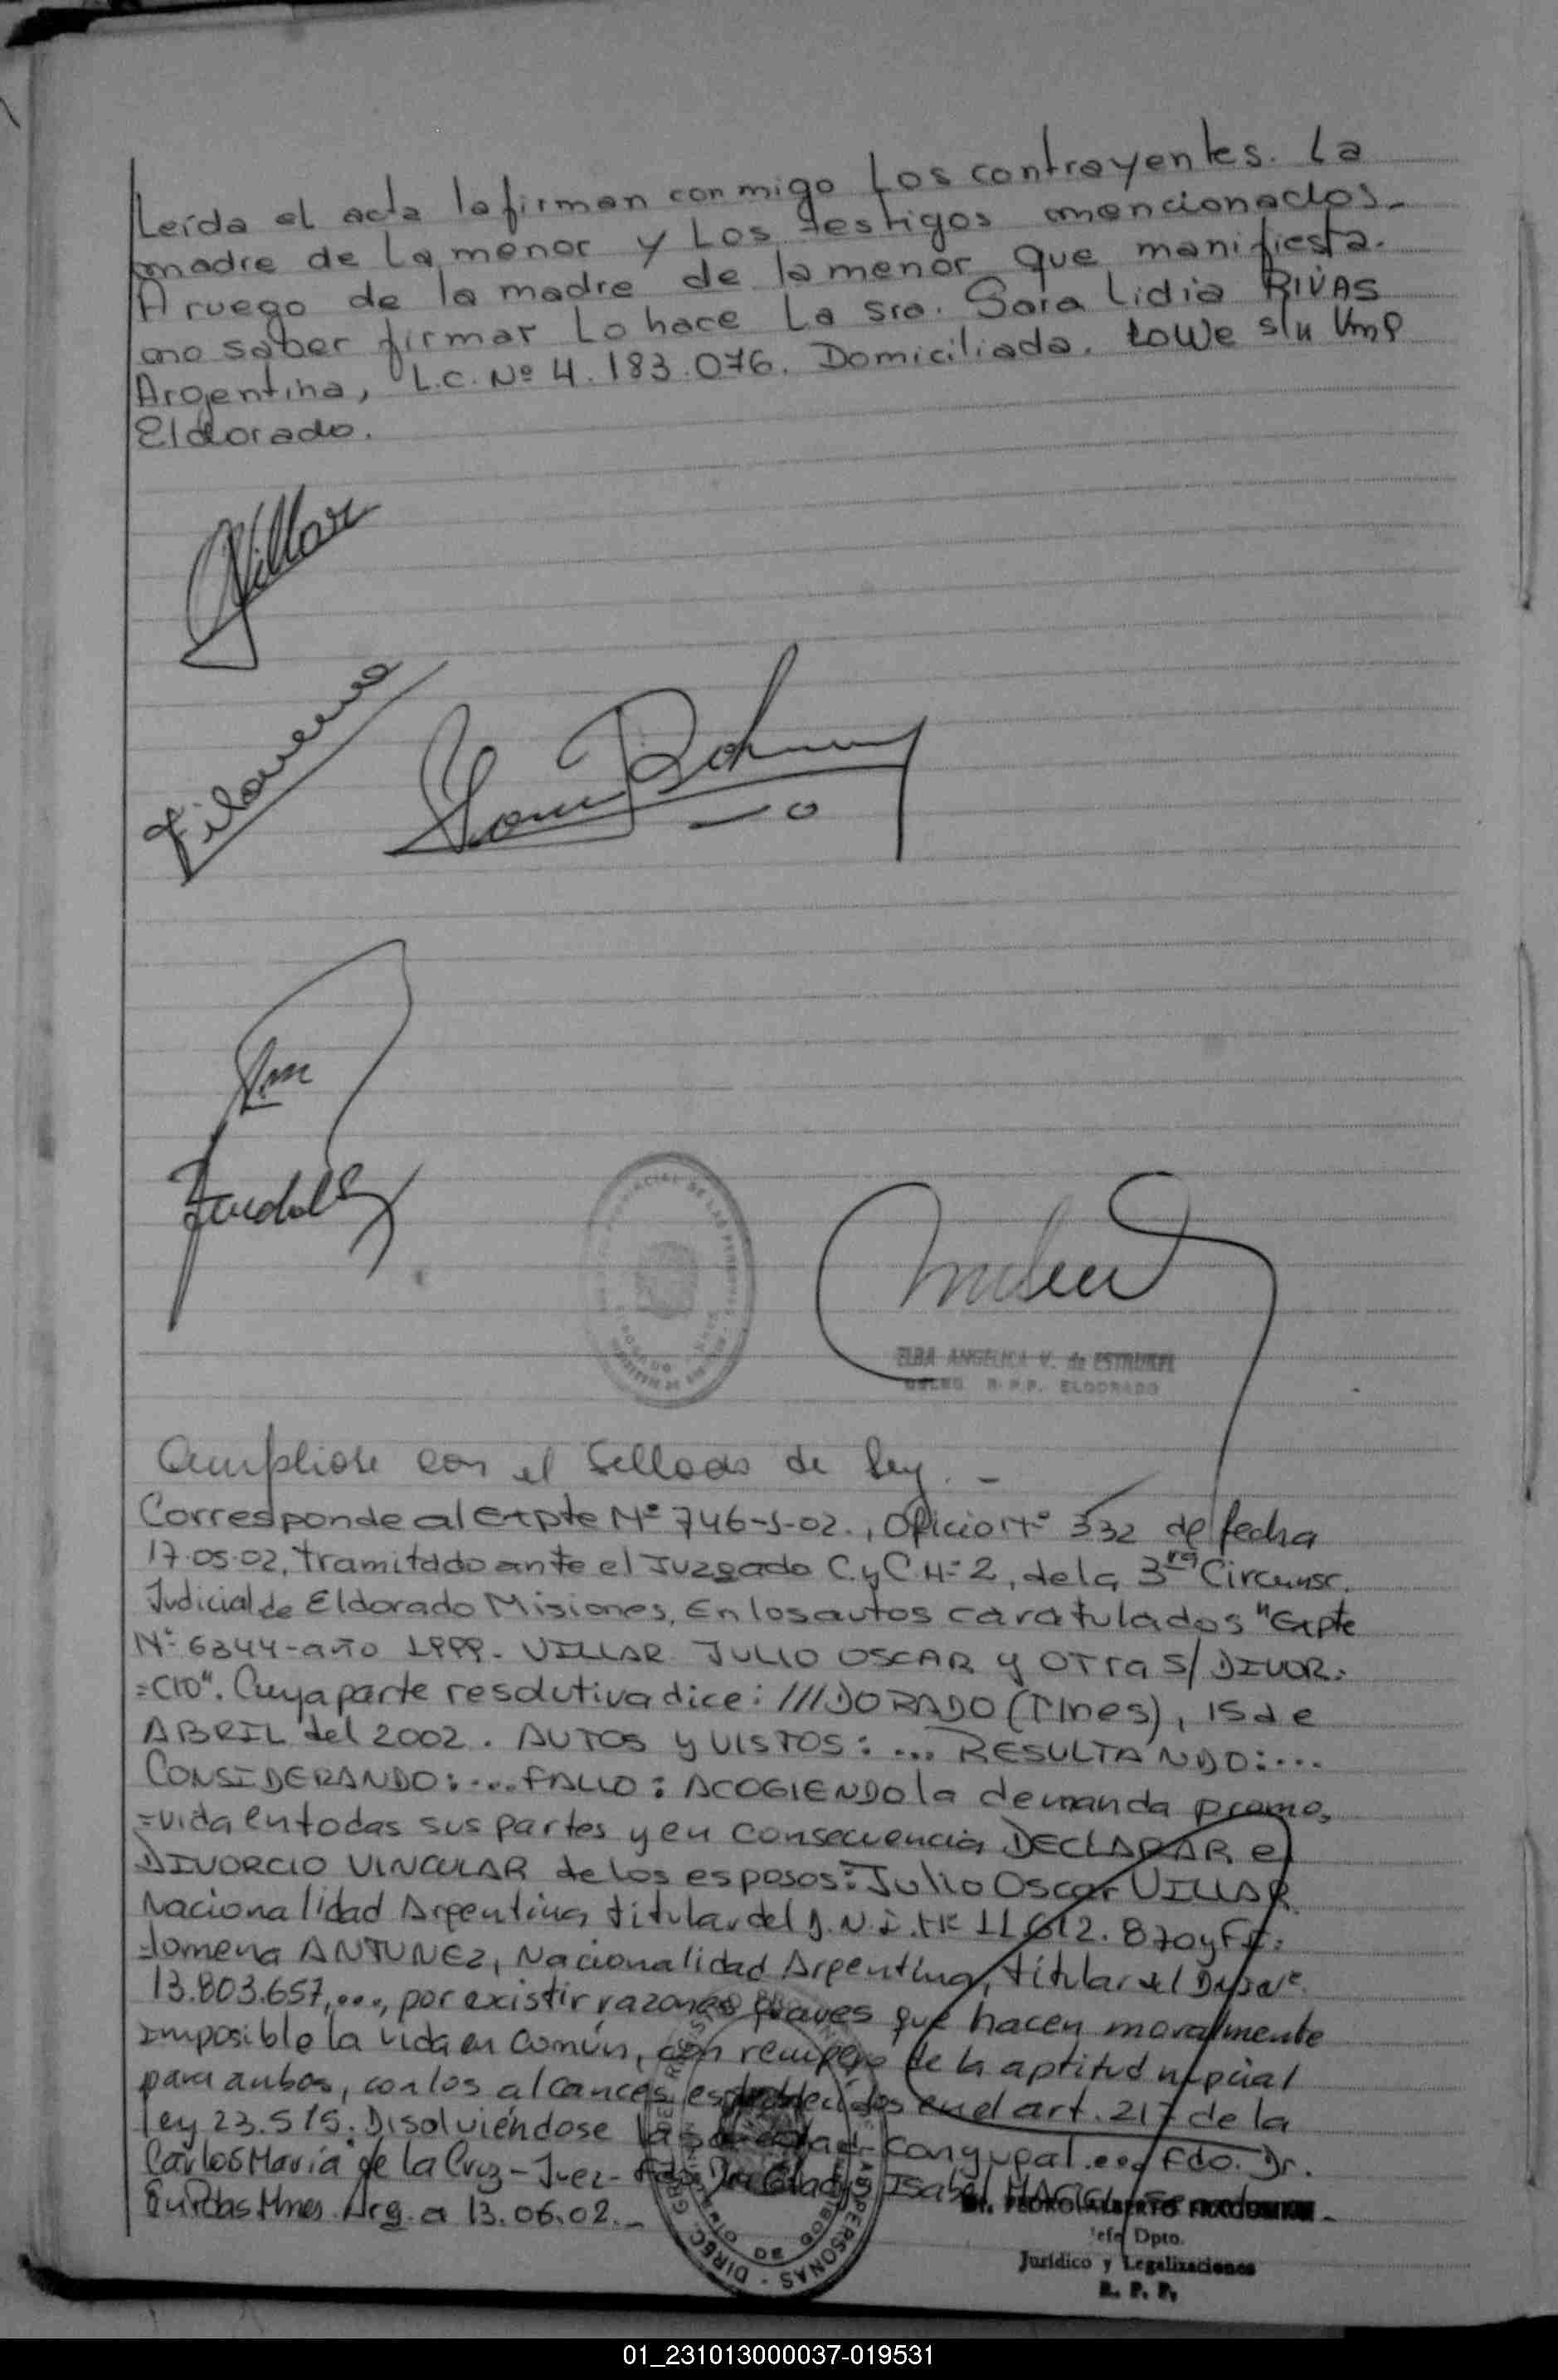 Leída el acta la firman conmigo Los contrayentes. La
madre de La menor y Los testigos mencionados.
A ruego de la madre de la menor que manifiesta.
no saber firmar Lo hace La sra. Sara Lidia RIVAS
Argentina, L.C. Nº 4.183.076. Domiciliada. Lowe s/n Vmp
Eldorado.
Villar
Filomena
ELBA ANGELICA V. de
R.P.P. ELDORADO
Cumpliose con el Sellado de Ley. -
Corresponde al Expte Nº 746-J-02., Oficio Nº 332 de fecha
17.05.02, tramitado ante el Juzgado C. y C. Nº 2, de la 3ra Circunsc.
Judicial de Eldorado Misiones, En los autos caratulados "Expte
Nº 6344-año 1999. VILLAR JULIO OSCAR y OTra S/ DIVOR=
=CIO". Cuya parte resolutiva dice: ///DORADO (Mnes), 15 de
ABRIL del 2002. AUTOS y VISTOS: ... RESULTANDO: ...
CONSIDERANDO: ... FALLO: ACOGIENDO la demanda promo=
=vida en todas sus partes y en consecuencia DECLARAR el
DIVORCIO VINCULAR de los esposos: Julio Oscar VILLAR
Nacionalidad Argentina, titular del D.N.I. Nº 11.612.870 y Fi=
=lomena ANTUNEZ, Nacionalidad Argentina, titular del DNI Nº
13.803.657,..., por existir razones graves que hacen moralmente
imposible la vida en común, con recupero de la aptitud nupcial
para ambos, con los alcances establecidos en el art. 217 de la
ley 23.515. Disolviéndose la sociedad conyugal ... Fdo. Dr.
Carlos María de la Cruz - Juez - Fdo. Dra Gladys Isabel
En Pdas Mnes. Arg. a 13.06.02. -
Dr. PEDRO ALBERTO
Jefe Dpto.
Jurídico y Legalizaciones
R. P. P.
01_231013000037-019531